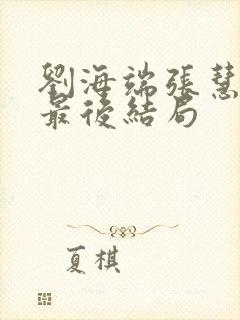 劉海端張慧
最後結局
夏棋